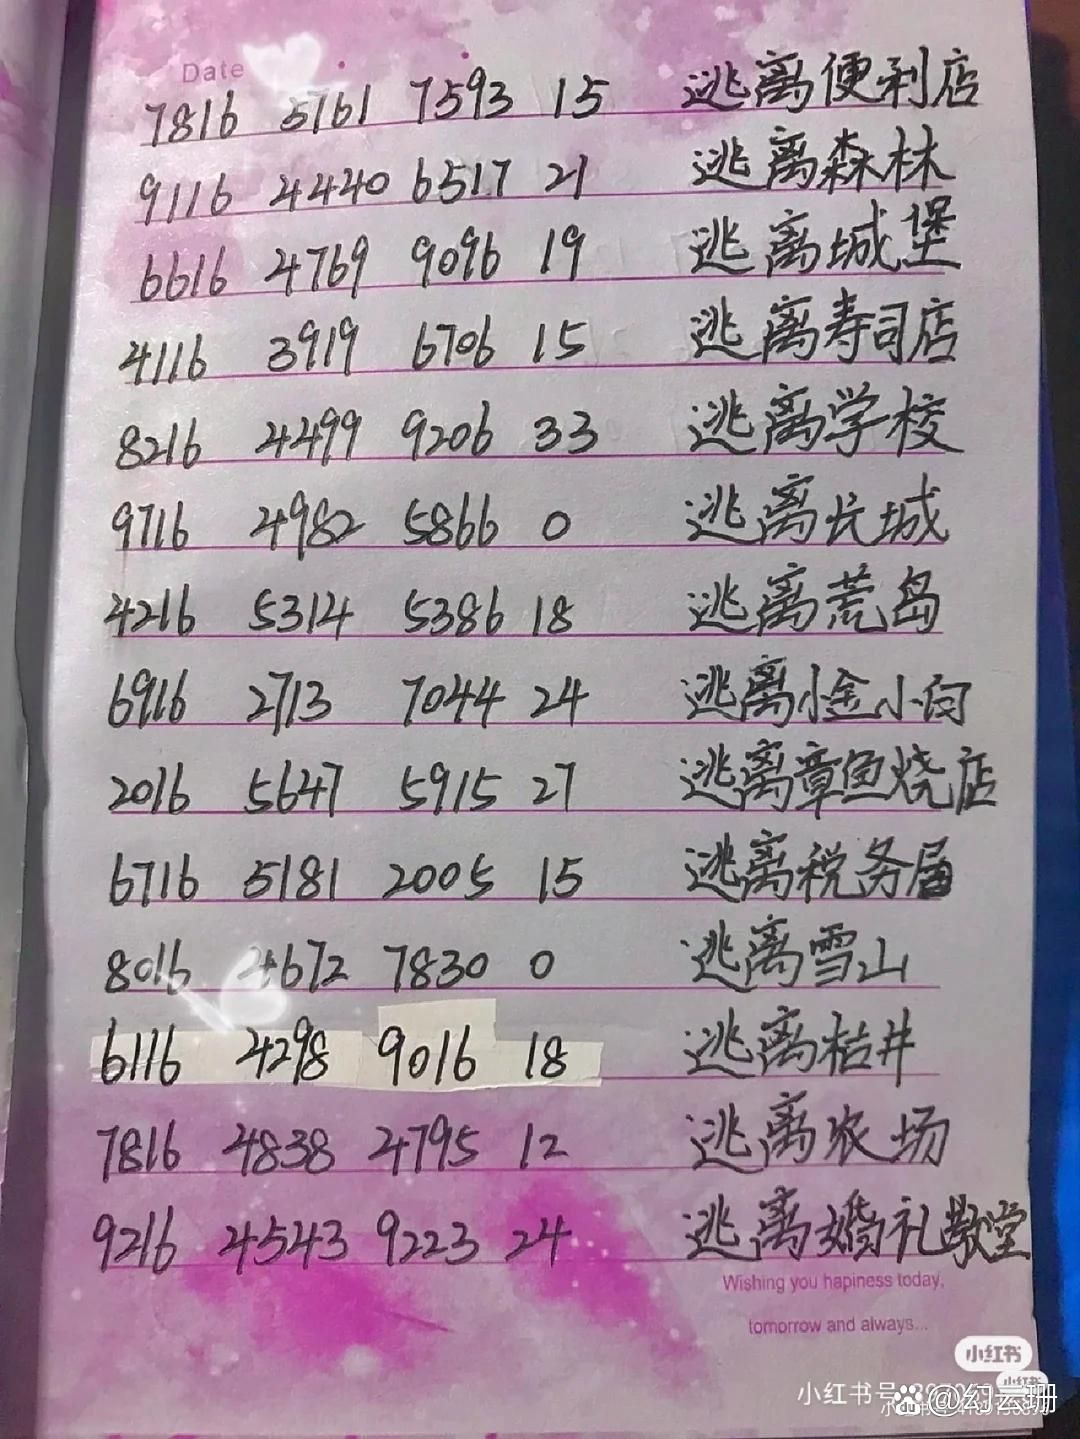 Date
7816 5761 7593 15 逃离便利店
9116 4440 6517 21 逃离森林
6616 4769 9096 19 逃离城堡
4116 3919 6706 15 逃离寿司店
8216 4499 9206 33 逃离学校
9716 4982 5866 0 逃离长城
4216 5314 5386 18 逃离荒岛
6916 2713 7044 24 逃离小金小向
2016 5647 5915 27 逃离章鱼烧店
6716 5181 2005 15 逃离税务届
8016 4672 7830 0 逃离雪山
6116 4298 9016 18 逃离枯井
7816 4838 4795 12 逃离农场
9216 4543 9223 24 逃离婚礼教堂
Wishing you hapiness today,
tomorrow and always...
小红书
小红书
小红书号
@幻云珊